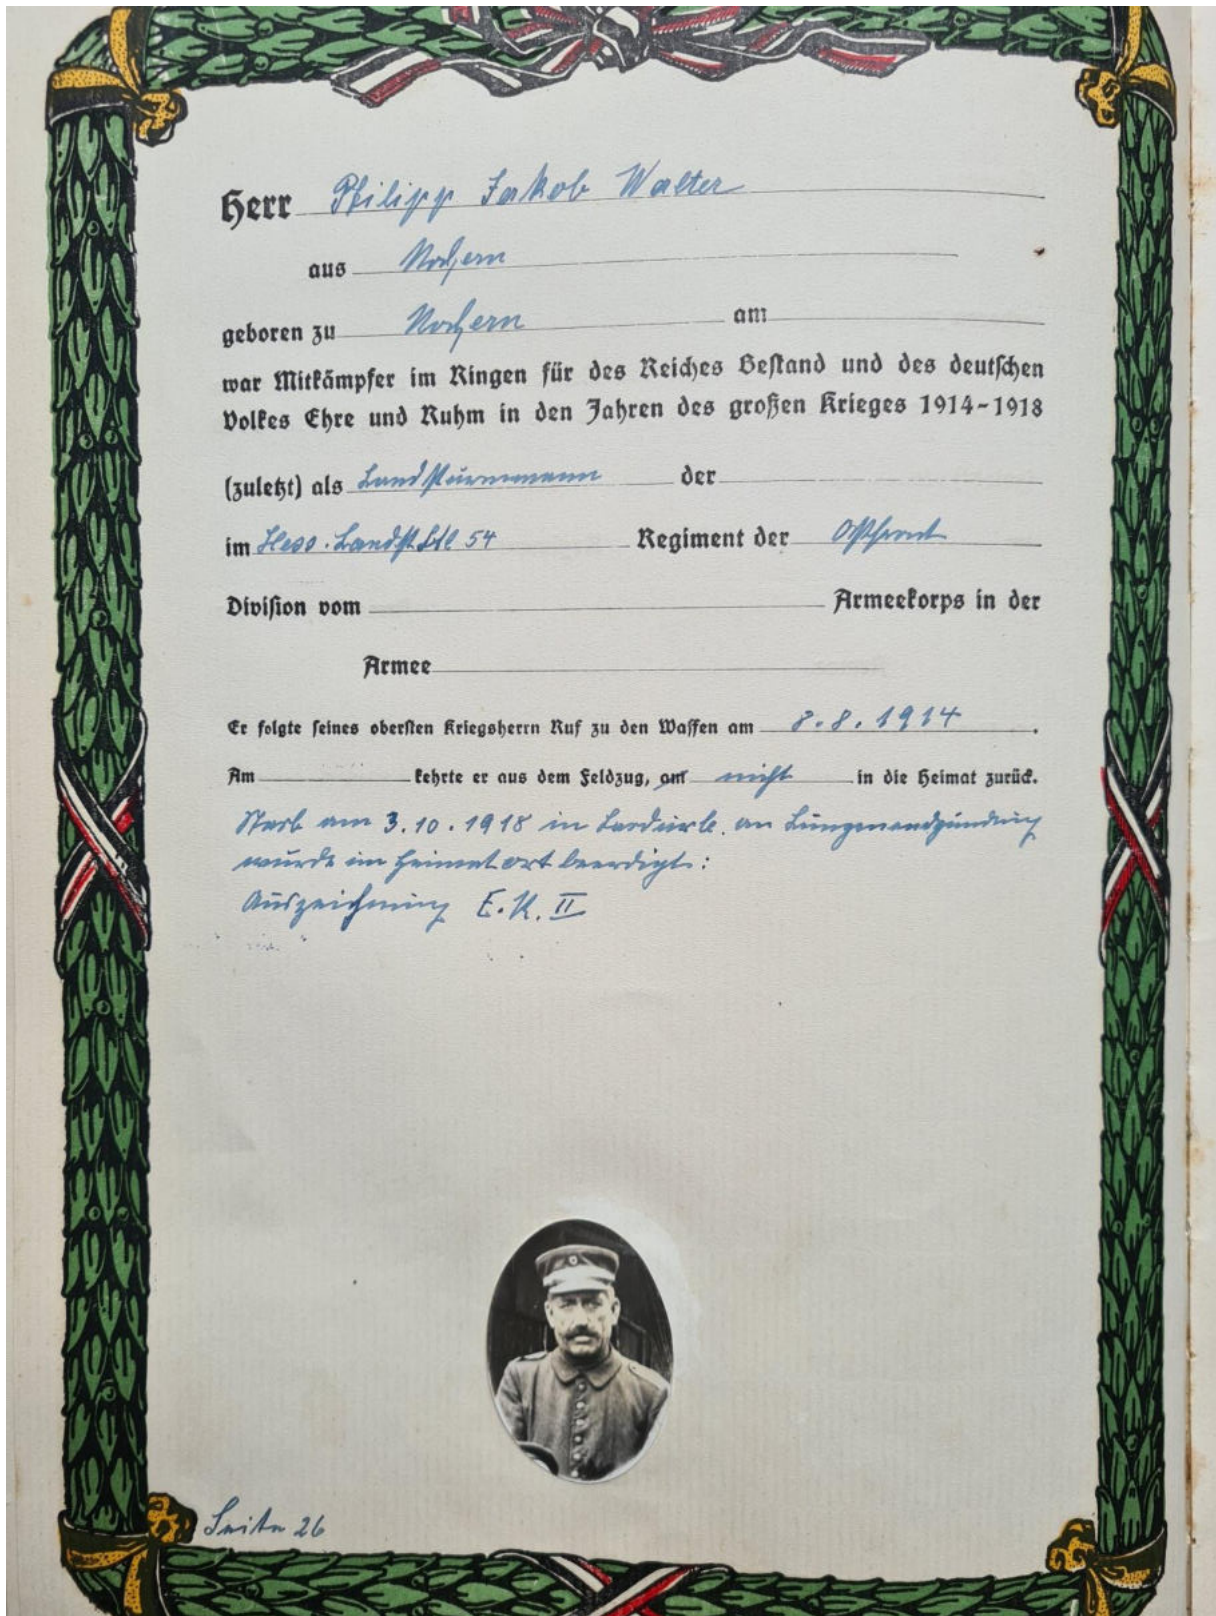 Herr Philipp Jakob Walter
aus Nochern
geboren zu Nochern am
war Mitkämpfer im Ringen für des Reiches Bestand und des deutschen
Volkes Ehre und Ruhm in den Jahren des großen Krieges 1914-1918
(zuletzt) als Landsturmmann der
im Hess. Landst. Btl 54 Regiment der Ostfront
Division vom Armeekorps in der
Armee
Er folgte seines obersten Kriegsherrn Ruf zu den Waffen am 8.8.1914.
Am kehrte er aus dem Feldzug, nicht in die Heimat zurück.
Starb am 3.10.1918 in an Lungenendzündung
wurde im Heimatort beerdigt:
Auszeichnung E.K. II
Seite 26